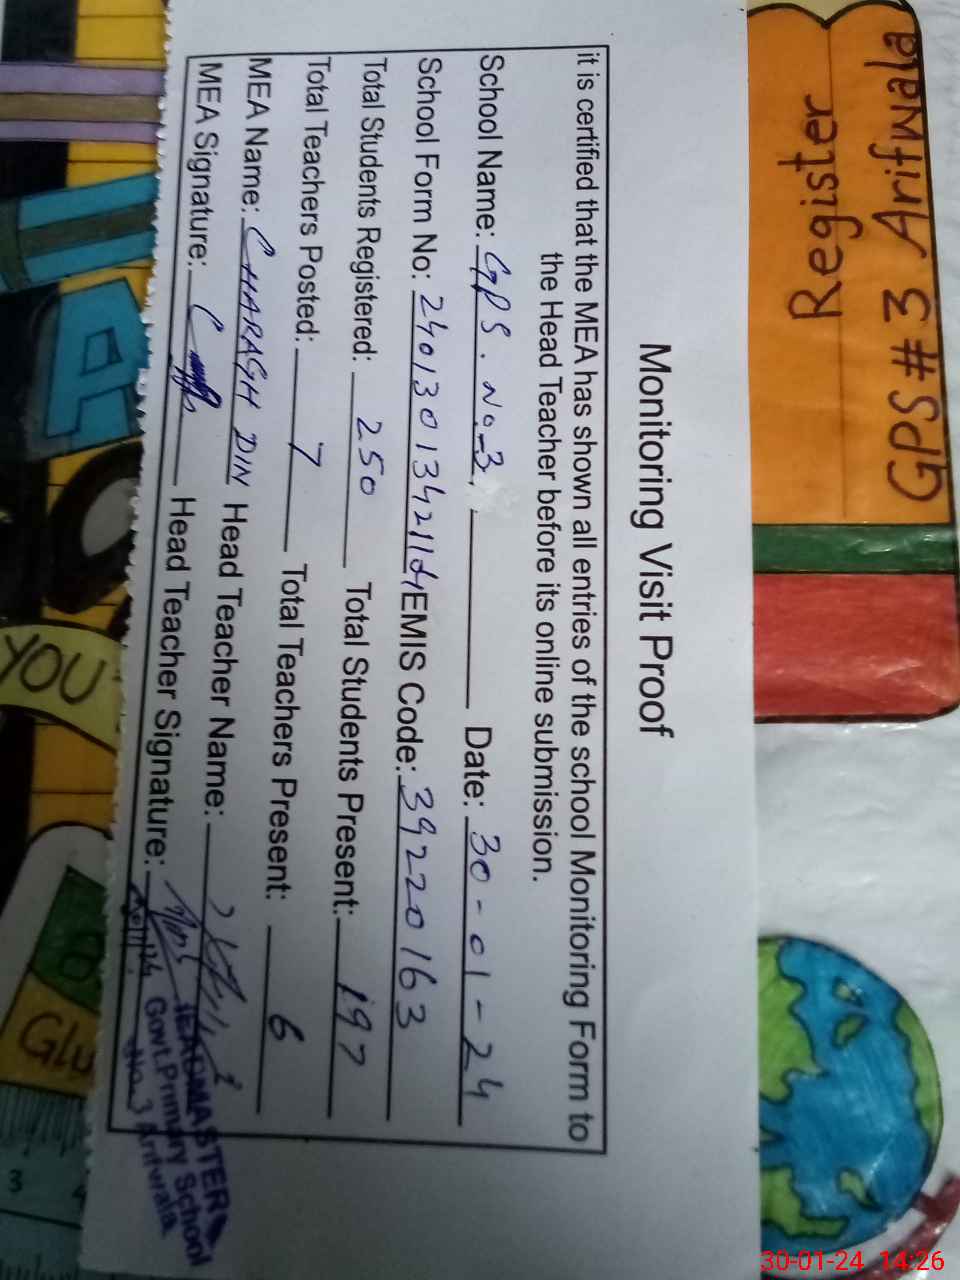 Monitoring Visit Proof
it is certified that the MEA has shown all entries of the school Monitoring Form to
the Head Teacher before its online submission.
School Name: GPS. No. 3. Date: 30-01-24
School Form No: EMIS Code: 39220163
Total Students Registered: 250 Total Students Present: 197
Total Teachers Posted: 7 Total Teachers Present: 6
MEA Name: CHARAGH DIN Head Teacher Name:
MEA Signature: Head Teacher Signature:
HEADMASTER
Govt. Primary School
No. 3 Arifwala
GPS #3 Arifwala
Register
YOU
Glu
3
4
30-01-24 14:26